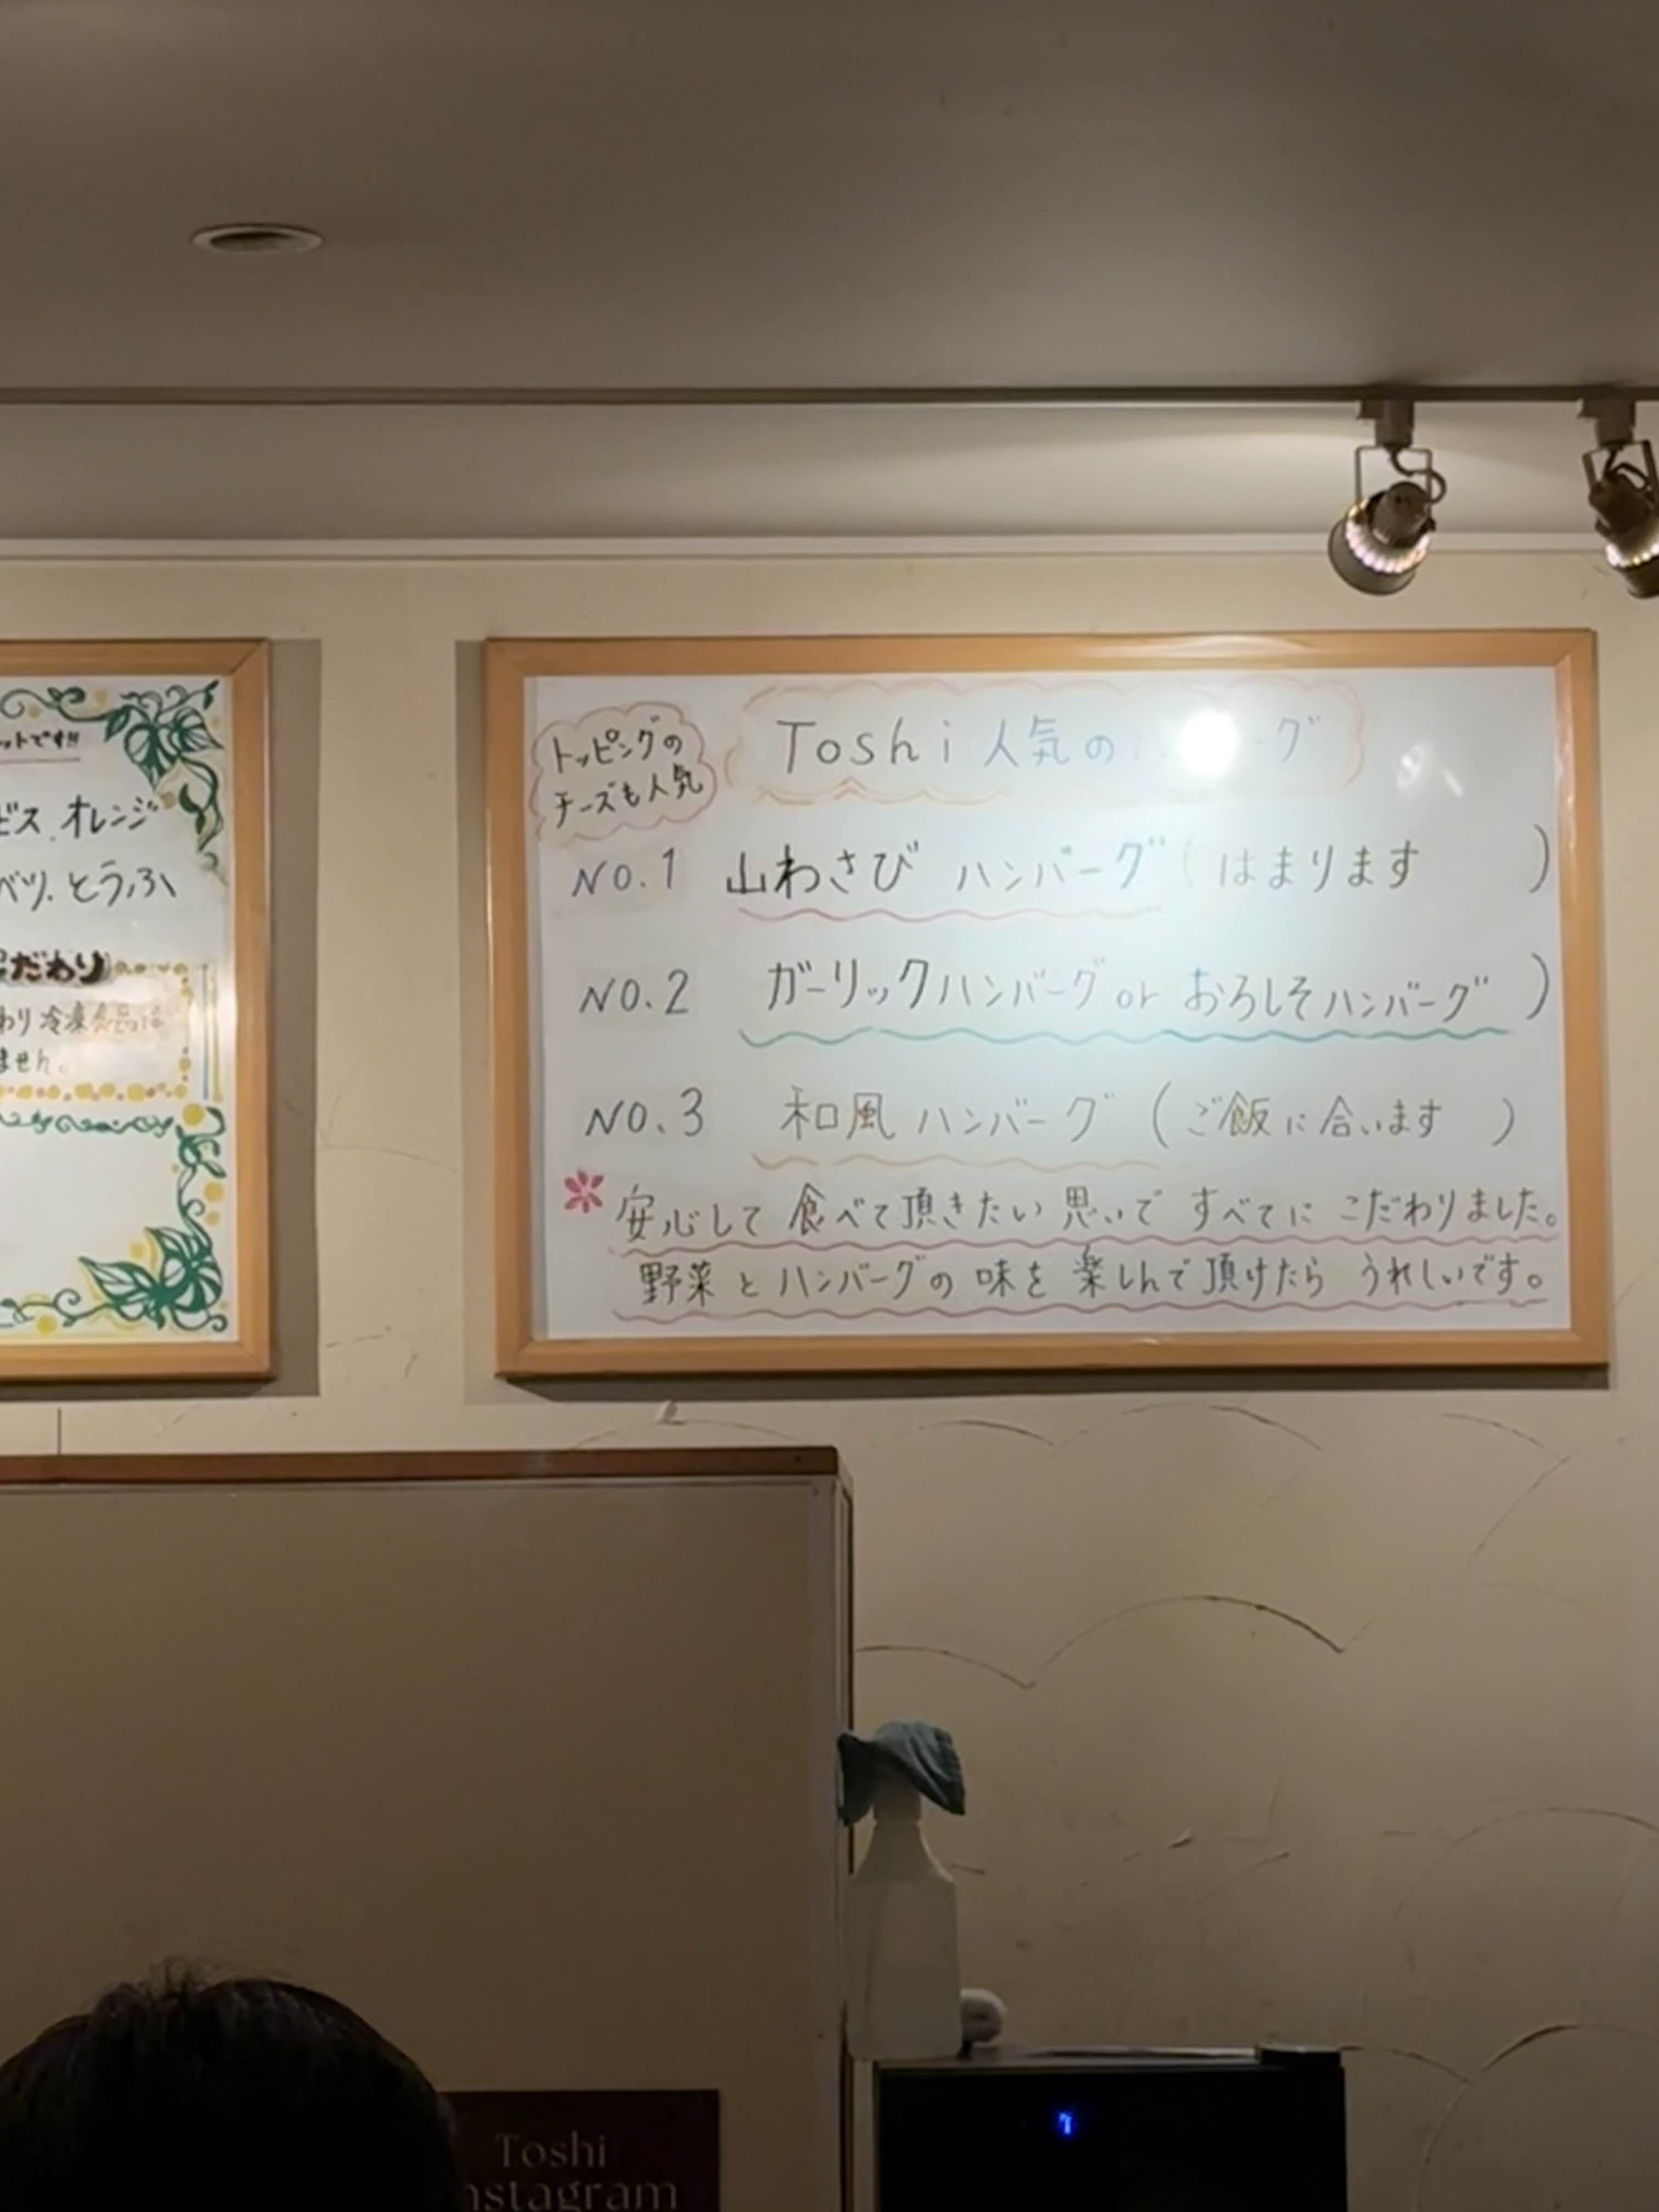 ットです!!
ビス、オレンジ
ベツ、とうふ
こだわり
わり冷凍食品は
ません。
トッピングの
チーズも人気
Toshi 人気の ーグ
NO.1 山わさび ハンバーグ(はまります )
NO.2 ガーリックハンバーグ or おろしそハンバーグ )
NO.3 和風 ハンバーグ (ご飯に合います )
安心して 食べて頂きたい 思いで すべてに こだわりました。
野菜 と ハンバーグの 味を 楽しんで頂けたら うれしいです。
Toshi
nstagram